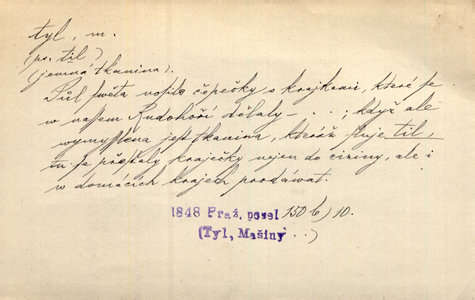 tyl, m.
(ps. til)
(jemná tkanina).
Půl světa nosilo čépečky s krajkami, které se
w našem Rudohoří dělaly – . . ; když ale
wymyšlena jest tkanina, kteráž sluje til,
tu se přestaly kraječky nejen do ciziny, ale i
w domácích krajech prodáwat.
1848 Praž. posel 150 b) 10.
(Tyl, Mašiny . .)